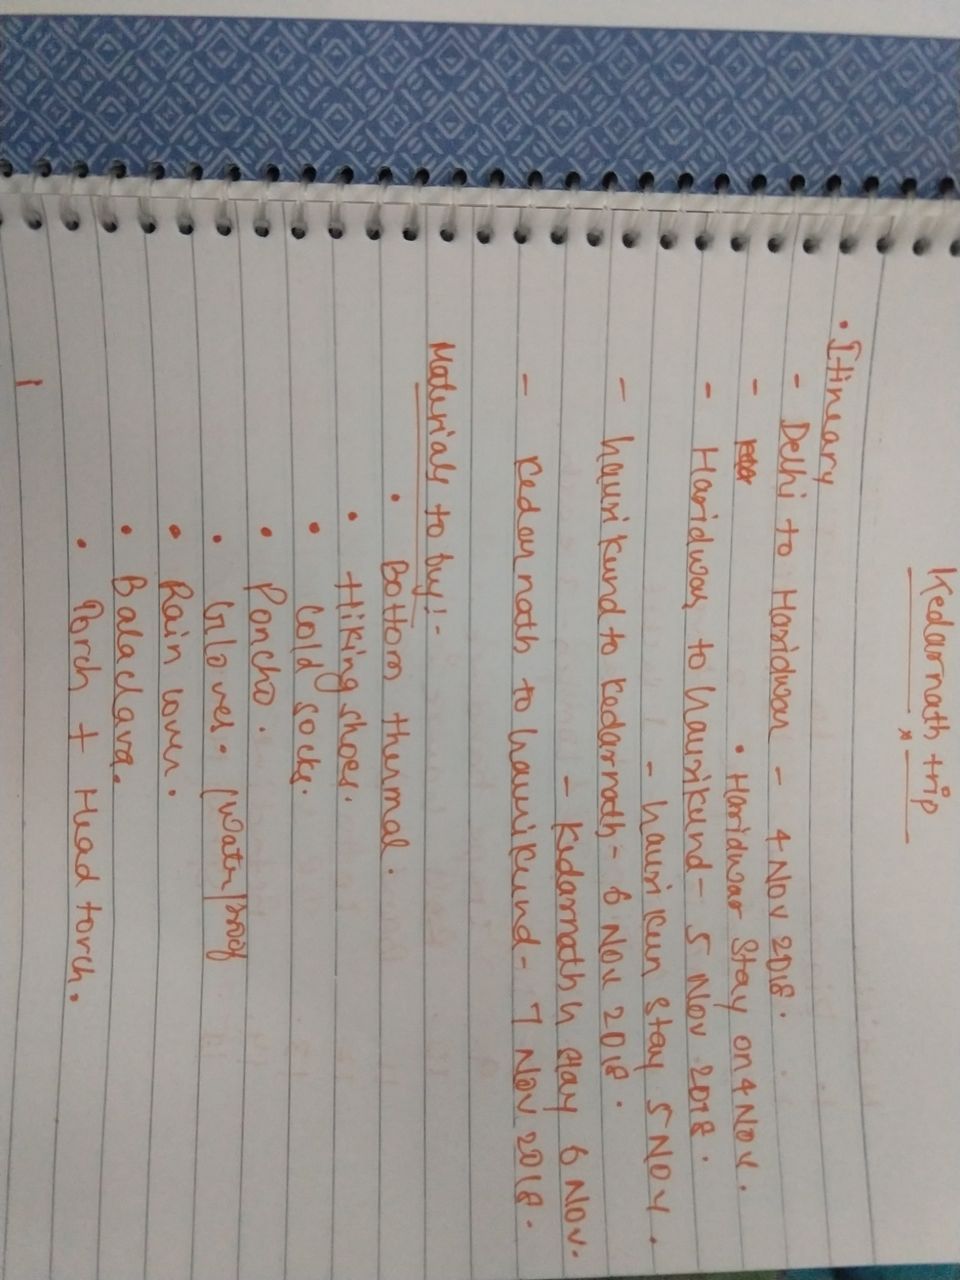 Kedarnath trip
• Itineary
- Delhi to Haridwar - 4 Nov 2018.
-
• Haridwar Stay on 4 Nov.
- Haridwar to Gaurikund - 5 Nov 2018.
- Gaurikun Stay 5 Nov.
- Gaurikund to Kedarnath - 6 Nov 2018.
- Kedarnath Stay 6 Nov.
- Kedarnath to Gaurikund - 7 Nov 2018.
Materials to buy:-
• Bottom thermal.
• Hiking shoes.
• Cold socks.
• Poncho.
• Gloves. (Water proof
• Rain cover.
• Balaclava.
• Torch + Head torch.